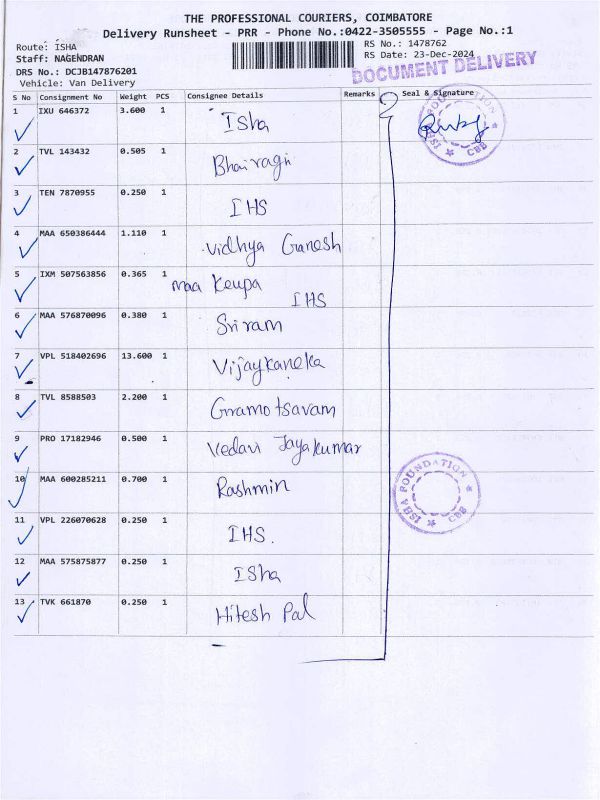 THE PROFESSIONAL COURIERS, COIMBATORE
Delivery Runsheet - PRR - Phone No.:0422-3505555 - Page No.:1
Route: ISHA
RS No.: 1478762
Staff: NAGENDRAN
RS Date: 23-Dec-2024
DRS No.: DCJB147876201
DOCUMENT DELIVERY
Vehicle: Van Delivery
S No Consignment No Weight PCS Consignee Details Remarks Seal & Signature
1 IXU 646372 3.600 1 Isha
2 TVL 143432 0.505 1 Bhairagi
3 TEN 7870955 0.250 1 IHS
4 MAA 650386444 1.110 1 Vidhya Ganesh
5 IXM 507563856 0.365 1 maa Keupa IHS
6 MAA 576870096 0.380 1 Sriram
7 VPL 518402696 13.600 1 Vijaykaneka
8 TVL 8588503 2.200 1 Gramotsavam
9 PRO 17182946 0.500 1 Vedavi Jayakumar
10 MAA 600285211 0.700 1 Rashmin
11 VPL 226070628 0.250 1 IHS.
12 MAA 575875877 0.250 1 Isha
13 TVK 661870 0.250 1 Hitesh Pal
ISHA FOUNDATION
CBE
ISHA FOUNDATION
CBE